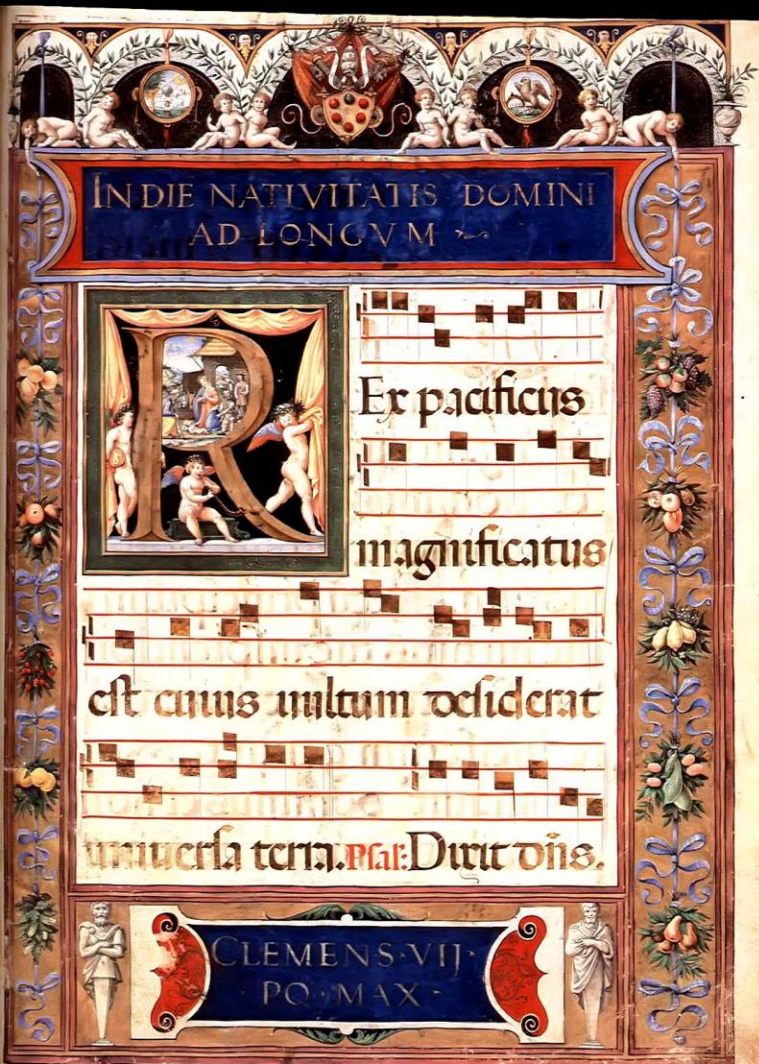 IN DIE NATIVITATIS DOMINI
AD LONGVM
REx pacificus
magnificatus
est cuius uultum desiderat
uniuersa terra. Psal: Dixit dñs.
CLEMENS · VIJ ·
· PO · MAX ·